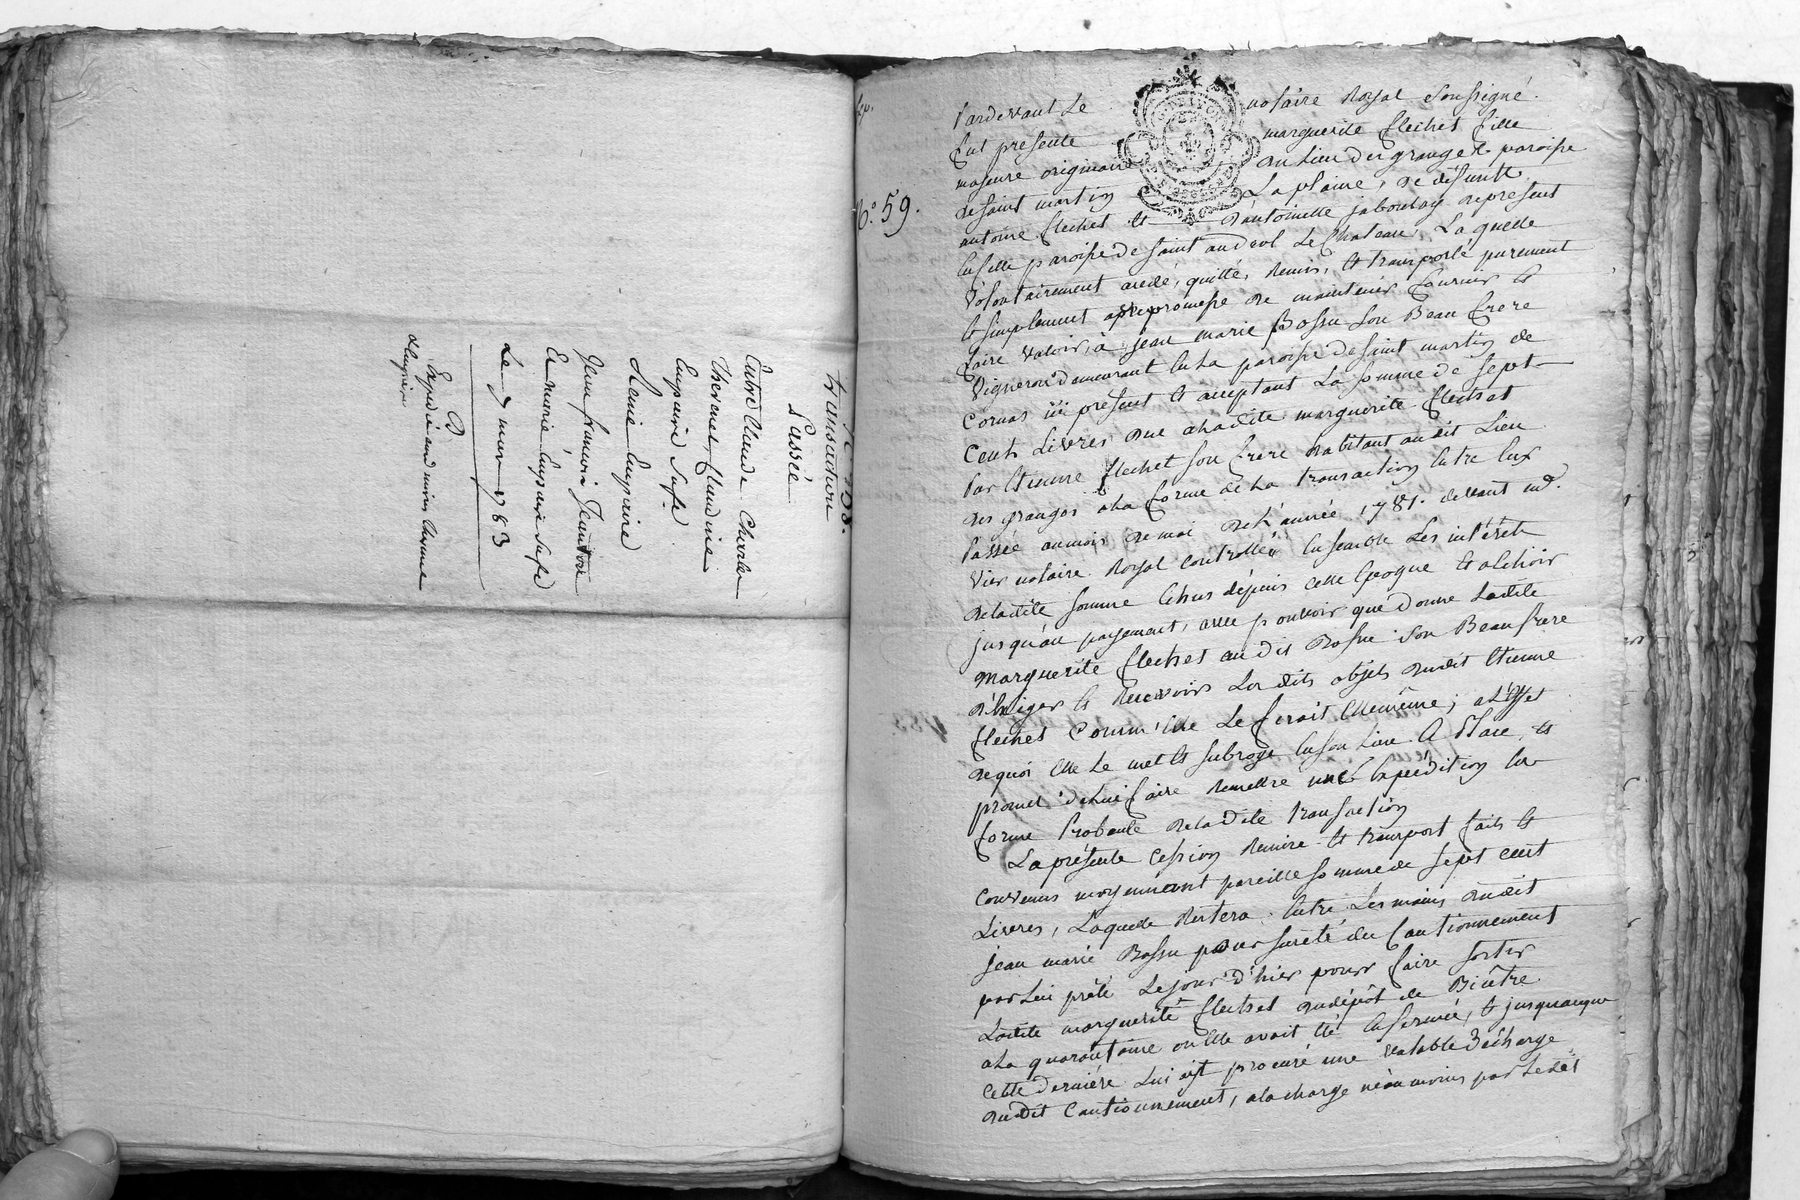 N.° 58.
transaction
Passée
Entre Claude Chevalier
Thevenet, Claudine
Enpaire Safe
Marie Enpaire
Jean francois Jeantou
Et marie Enpaire Safe
Le 7 mars 1783
N.° 59.
Pardevant Le notaire Royal Soussigné
fut presente marguerite flechet fille
majeure originaire du Lieu des granges paroisse
de saint martin La plaine, de défunt
antoine flechet et d'antoinette jaboulay represent
en cette paroisse de saint andeol Le Chateau, Laquelle
volontairement a cedé, quitté, Remis, et transporté purement
et simplement avec promesse de maintenir fournir et
faire valoir, à jean marie Bossu Son Beau frere
vigneron demeurant en La paroisse de saint martin de
Cornas ici present et acceptant La Somme de Sept
Cents Livres due a ladite marguerite flechet
Par Etienne flechet Son frere habitant audit Lieu
des granges a la forme de La transaction Entre Eux
Passée au mois de mai de L'année 1781. devant md.
vier notaire Royal controllée, Ensemble Les intérêts
de ladite Somme Echus dépuis cette Epoque et a Echoir
jusqu'au payement, avec pouvoir que donne Ladite
marguerite flechet audit Bossu Son Beau frere
d'Exiger et Recevoir Lesdits objets dudit Etienne
flechet Comm'Elle Le feroit Ellemême, a L'Effet
de quoi Elle Le met et subroge En son Lieu & Place, et
promet de Lui faire Remettre une Expédition En
forme Probante de ladite transaction
La présente Cession Remise et transport faits et
Convenus moyennant pareille somme de Sept cent
Livres, Laquelle Restera Entre Les mains dudit
jean marie Bossu pour sureté du Cautionnement
par Lui prêté Le jour d'hier pour faire Sortir
Ladite marguerite flechet du dépôt de Bicêtre
a La quarantaine ou Elle avoit Eté Enfermée, et jusqu'a ce que
cette derniére Lui ait procuré une valable décharge
dudit Cautionnement, a la charge néanmoins par Ledit